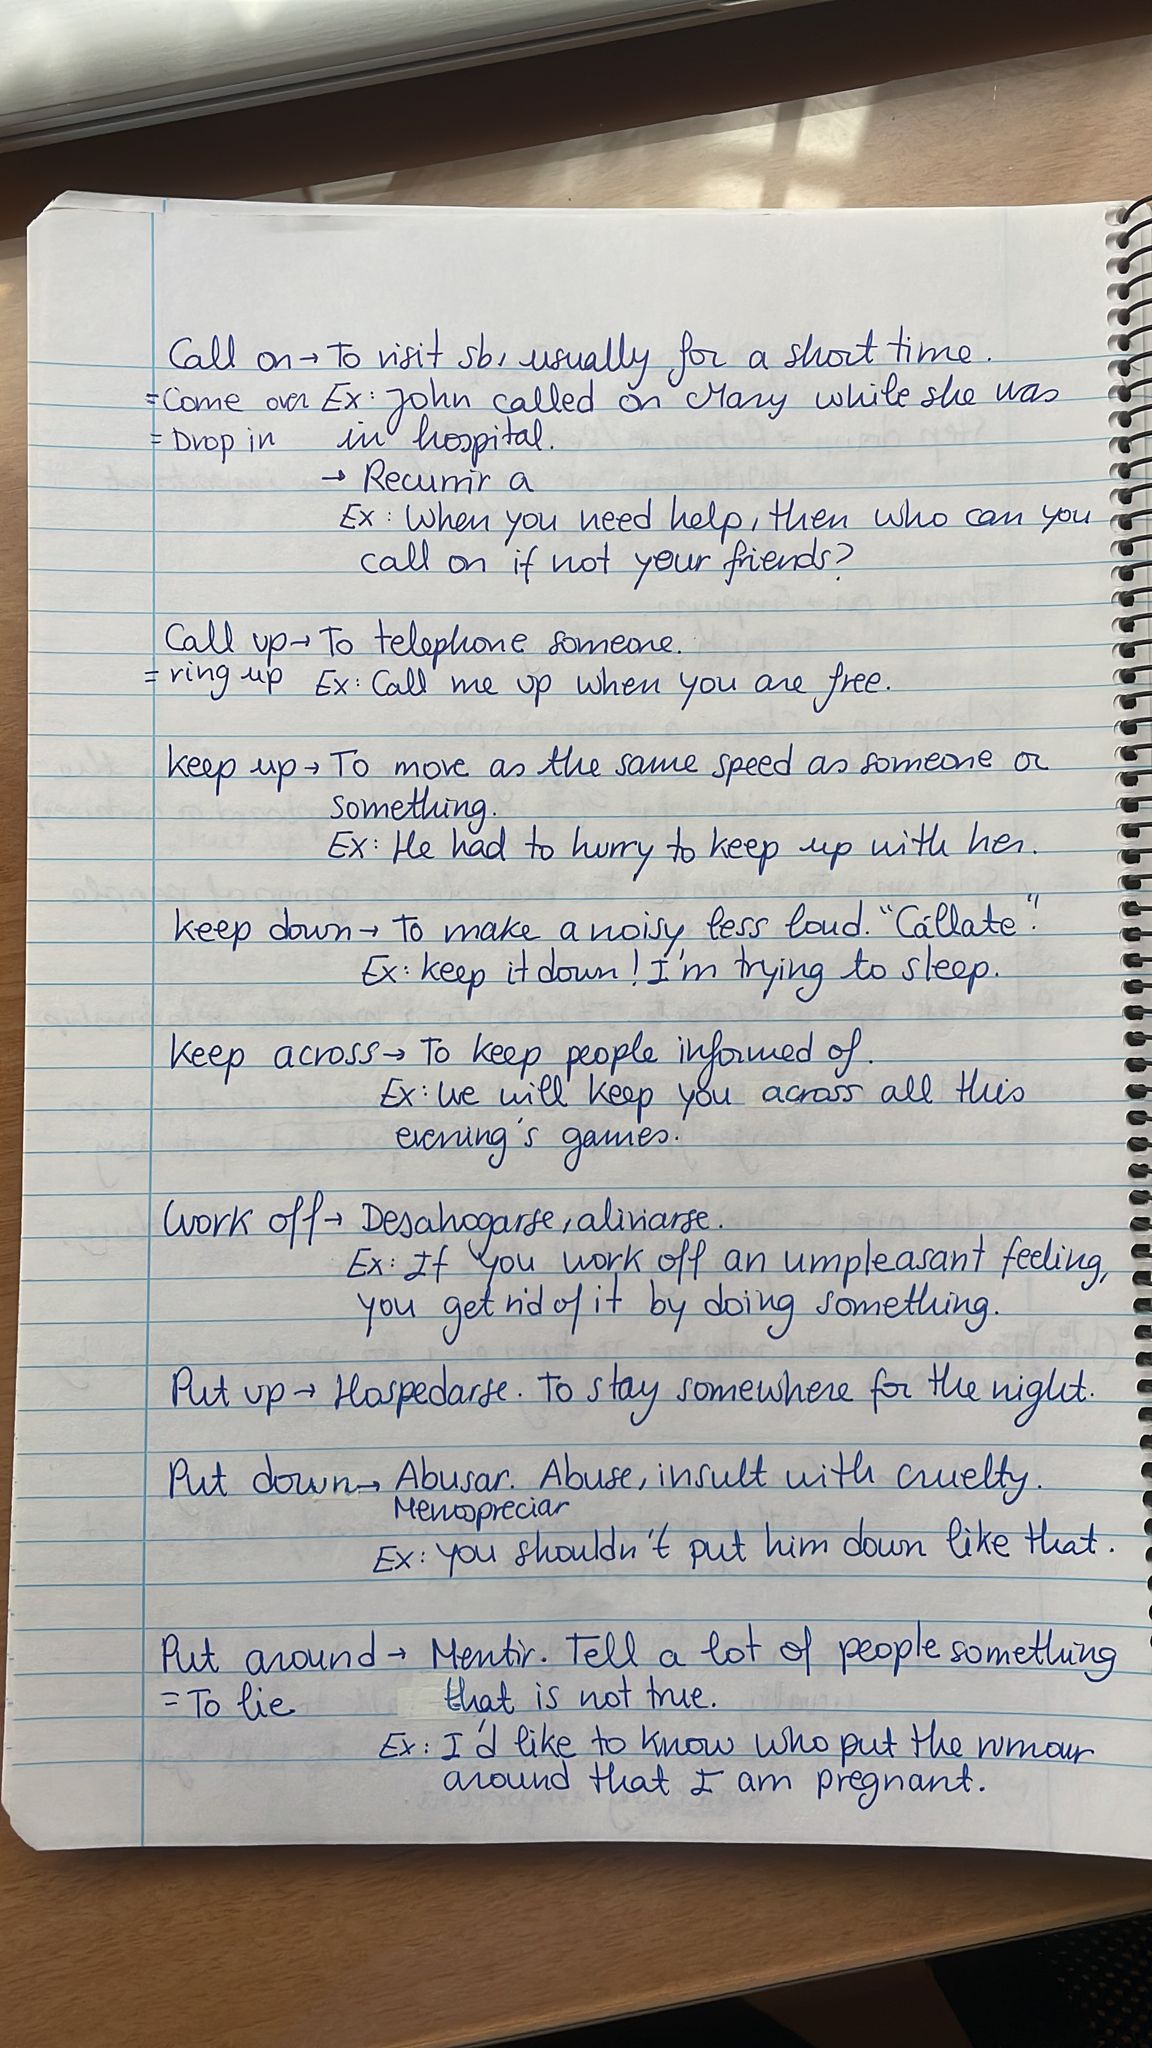 Call on → To visit sb, usually for a short time.
= Come over Ex: John called on Mary while she was
= Drop in in hospital.
→ Recurrir a
Ex: When you need help, then who can you
call on if not your friends?
Call up → To telephone someone.
= ring up Ex: Call me up when you are free.
Keep up → To move as the same speed as someone or
something.
Ex: He had to hurry to keep up with her.
Keep down → To make a noisy less loud. "Cállate".
Ex: Keep it down! I'm trying to sleep.
Keep across → To keep people informed of.
Ex: We will keep you across all this
evening's games.
Work off → Desahogarse, aliviarse.
Ex: If you work off an umpleasant feeling,
you get rid of it by doing something.
Put up → Hospedarse. To stay somewhere for the night.
Put down → Abusar. Abuse, insult with cruelty.
Menospreciar
Ex: You shouldn't put him down like that.
Put around → Mentir. Tell a lot of people something
= To lie that is not true.
Ex: I'd like to know who put the rumour
around that I am pregnant.